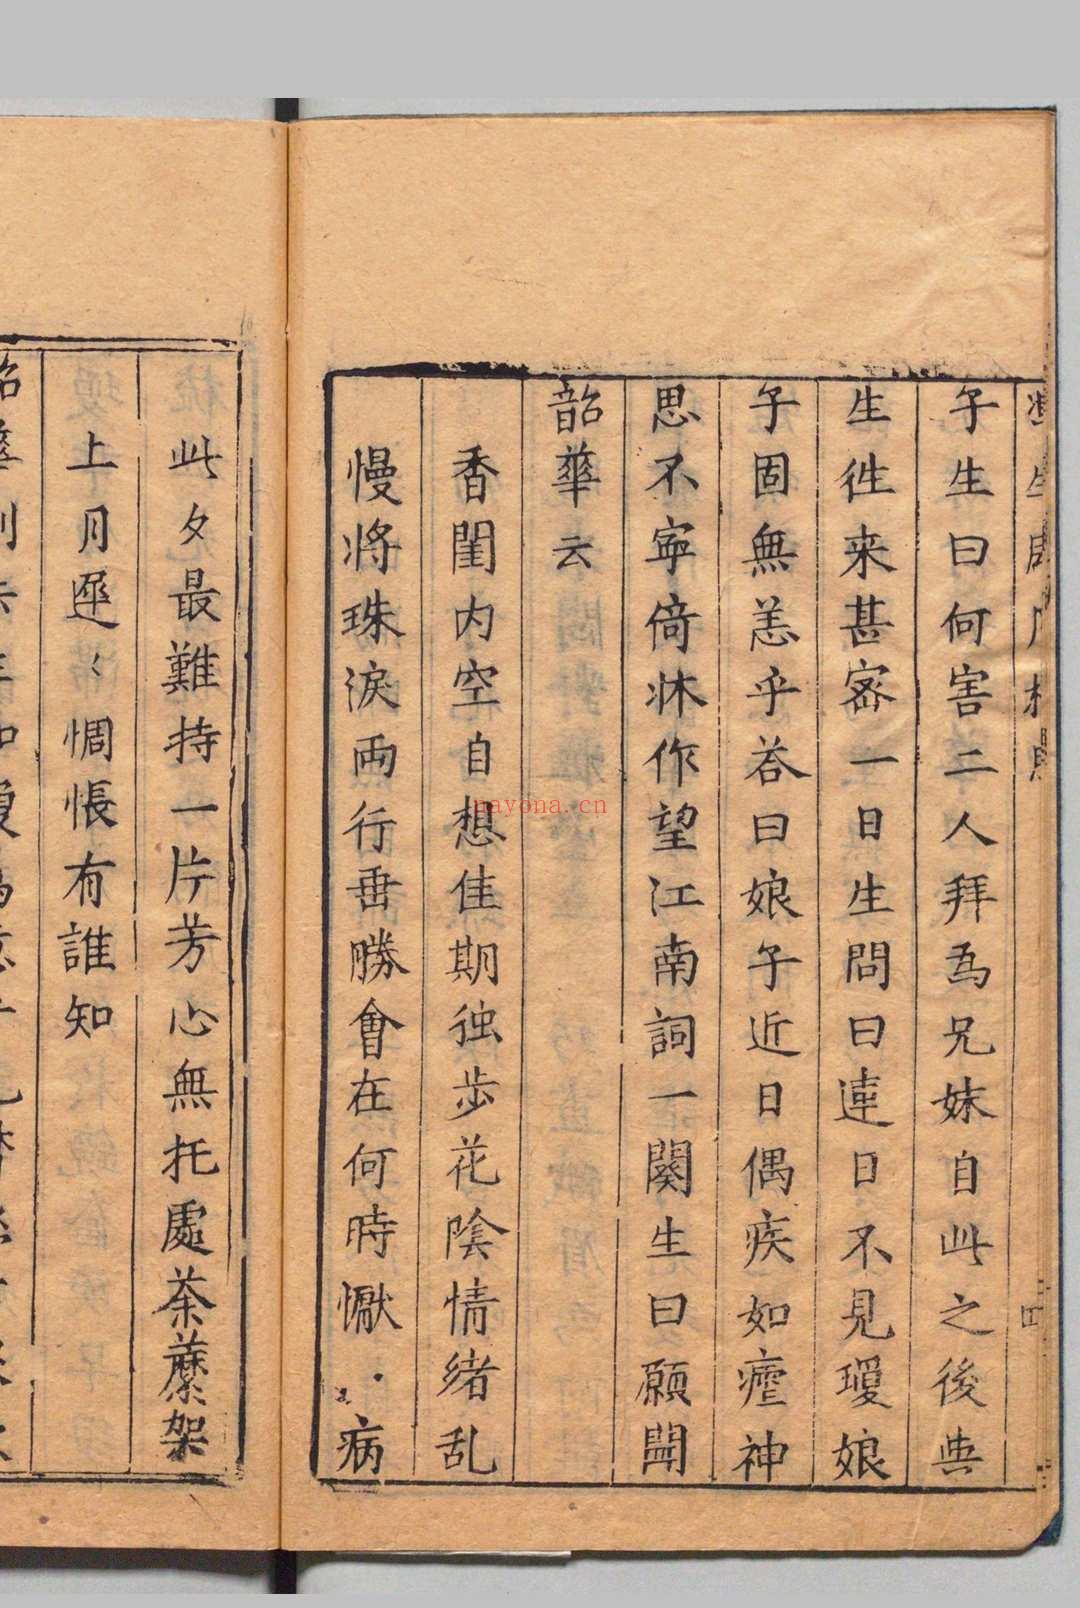 子生曰何害二人拜為兄妹自此之後與
生徃来甚密一日生問曰連日不見瓊娘
子固無恙乎荅曰娘子近日偶疾如癡神
思不寧倚牀作望江南詞一闋生曰願聞
韶華云
香閨内空自想佳期独步花陰情緒乱
慢將珠淚両行垂勝會在何時懨〻病
此夕最難持一片芳心無托處荼蘼架
上月遲〻惆悵有誰知
nayona.cn